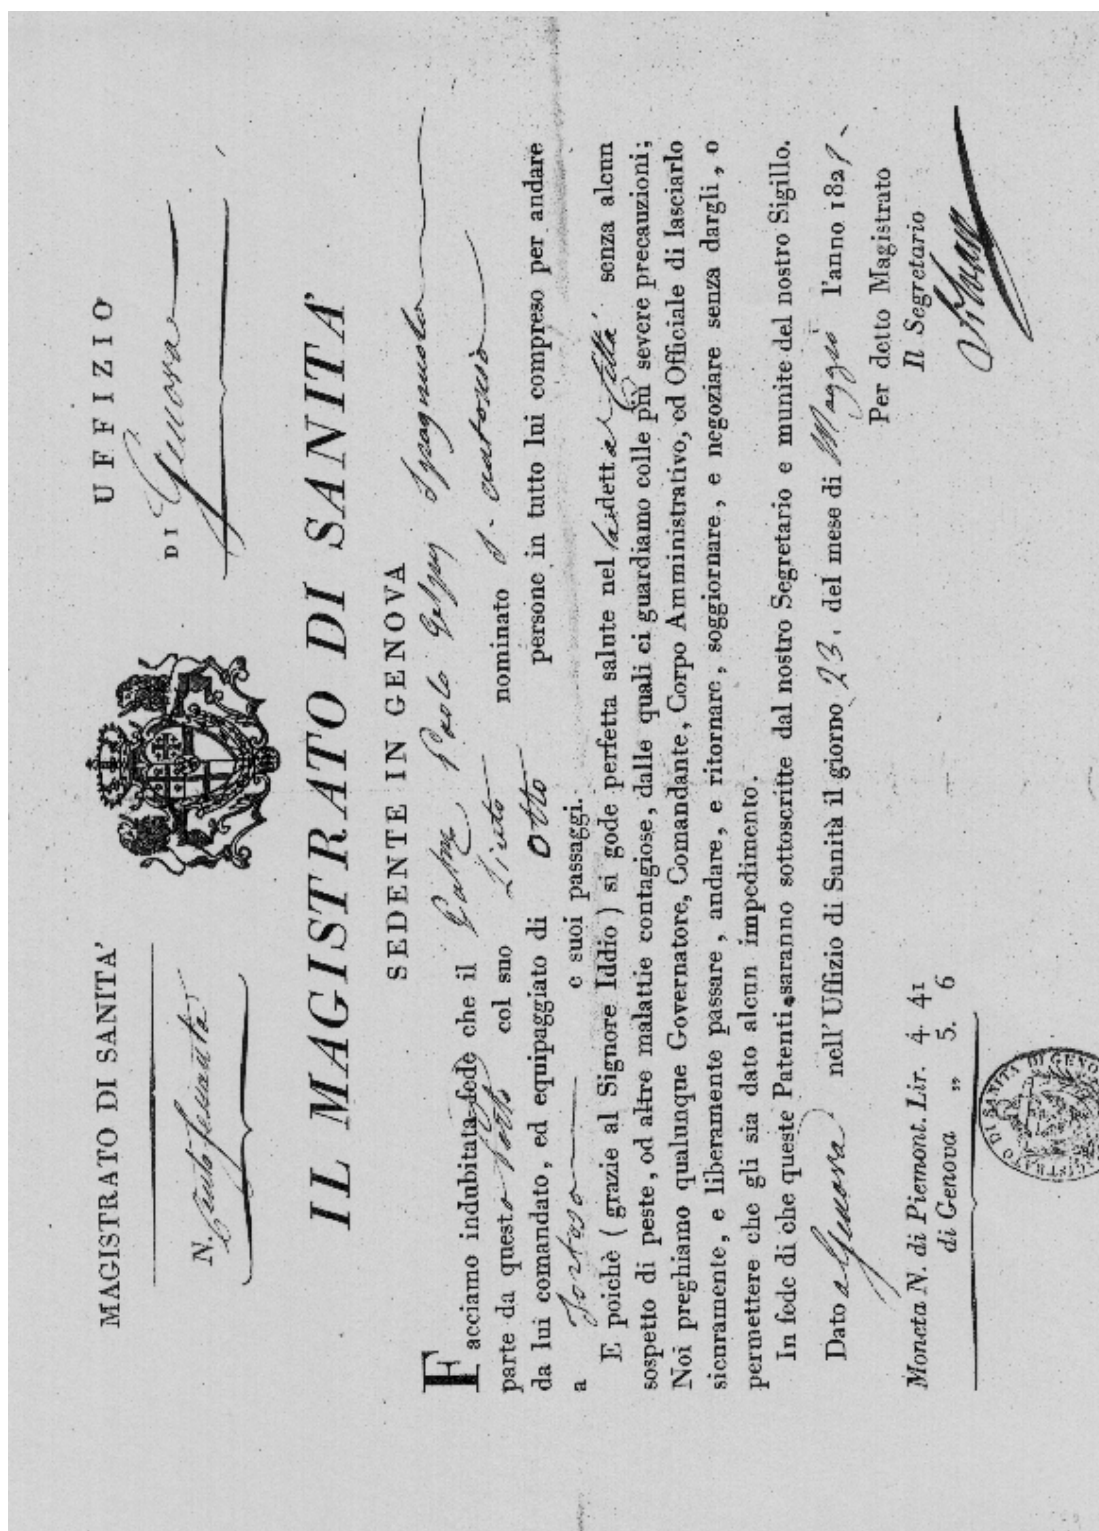 MAGISTRATO DI SANITA'
N.
UFFIZIO
DI Genova
IL MAGISTRATO DI SANITA'
SEDENTE IN GENOVA
Facciamo indubitata fede che il Paolo Spagnuolo
parte da questo Porto col suo nominato S. Antonio
da lui comandato, ed equipaggiato di Otto persone in tutto lui compreso per andare
a e suoi passaggi.
E poichè ( grazie al Signore Iddio ) si gode perfetta salute nel senza alcun
sospetto di peste, od altre malattie contagiose, dalle quali ci guardiamo colle più severe precauzioni;
Noi preghiamo qualunque Governatore, Comandante, Corpo Amministrativo, ed Officiale di lasciarlo
sicuramente, e liberamente passare, andare, e ritornare, soggiornare, e negoziare senza dargli, o
permettere che gli sia dato alcun impedimento.
In fede di che queste Patenti saranno sottoscritte dal nostro Segretario e munite del nostro Sigillo.
Dato a Genova nell' Uffizio di Sanità il giorno 23. del mese di Maggio l'anno 182
Per detto Magistrato
Il Segretario
Moneta N. di Piemont. Lir. 4. 41
di Genova „ 5. 6
MAGISTRATO DI SANITA DI GENO